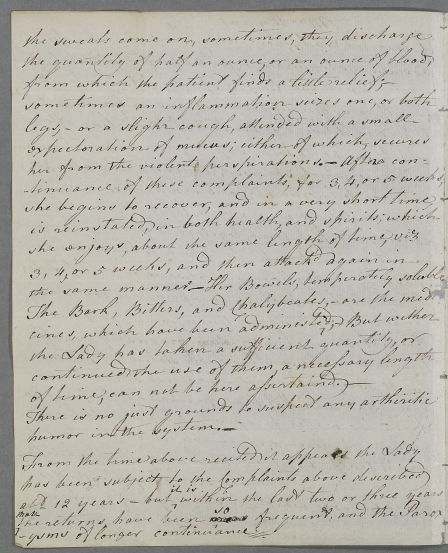 the sweats come on, sometimes, they discharge
the quantity of half an ounce, or an ounce of blood,
from which the patient finds a little relief;
sometimes an inflammation seizes one, or both
legs, - or a slight cough, attended with a small
expectoration of mucus; either of which, secures
her from the violent perspirations. - After a con-
-tinuance of these complaints, for 3, 4, or 5 weeks,
she begins to recover, and in a very short time,
is reinstated, in both health, and spirits; which
she enjoys, about the same length of time, viz.
3, 4, or 5 weeks, and then attack'd again in
the same manner. - Her Bowels, temperately soluble
The Bark, Bitters, and Chalybeates, - are the medi-
cines, which have been administer'd; But wether
the Lady has taken a sufficient quantity, or
continued the use of them, a necessary length
of time, can not be here assertaind. -
There is no just grounds to suspect any arthritic
humor in the system. -
From the time above recited it appears the Lady
has been subject to the Complaints above described
abt. 12 years - but it is within the last two or three years
that the returns, have been so frequent, and the Paro-
-xysms of longer continuance.